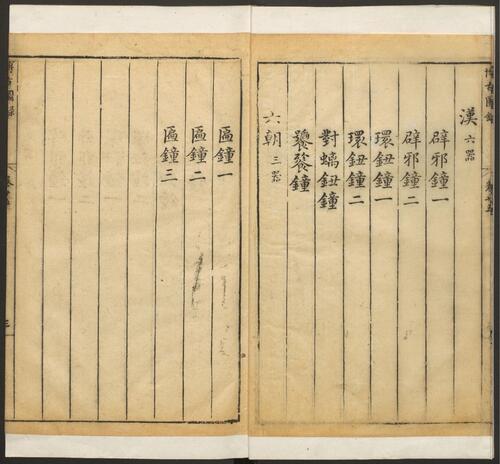 漢六器
辟邪鐘一
辟邪鐘二
環鈕鐘一
環鈕鐘二
對螭鈕鐘
饕餮鐘
六朝三器
匾鐘一
匾鐘二
匾鐘三